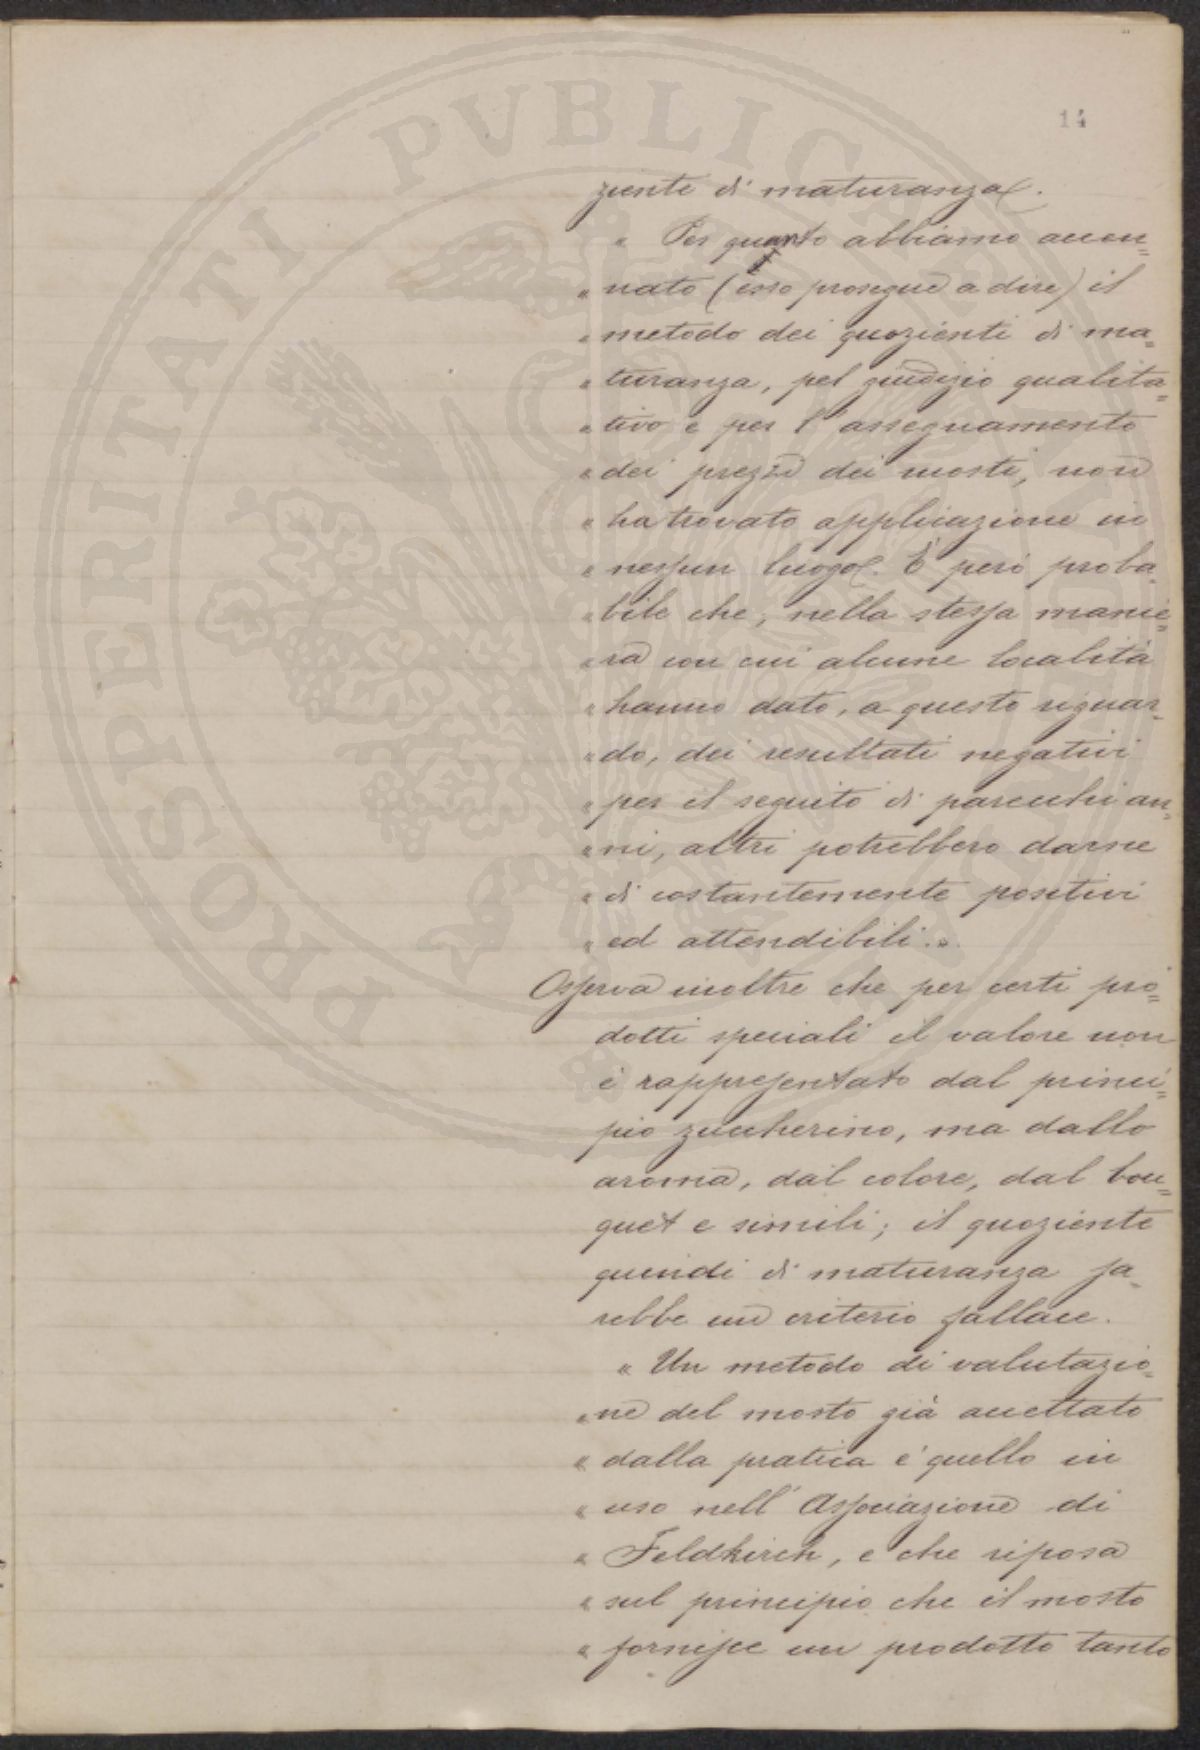 14
ziente di maturanza.
" Per quanto abbiamo accen=
" nato (esso prosegue a dire) il
" metodo dei quozienti di ma=
" turanza, pel giudizio qualita=
" tivo e per l'assegnamento
" dei prezzi dei mosti, non
" ha trovato applicazione in
" nessun luogo. È però proba=
" bile che, nella stessa manie=
" ra con cui alcune località
" hanno dato, a questo riguar=
" do, dei resultati negativi
" per il seguito di parecchi an=
" ni, altri potrebbero darne
" di costantemente positivi
" ed attendibili.".
Osserva inoltre che per certi pro=
dotti speciali il valore non
è rappresentato dal princi=
pio zuccherino, ma dallo
aroma, dal colore, dal bou=
quet e simili; il quoziente
quindi di maturanza sa=
rebbe un criterio fallace.
" Un metodo di valutazio=
" ne del mosto già accettato
" dalla pratica è quello in
" uso nell'Associazione di
" Feldkirch, e che riposa
" sul principio che il mosto
" fornisce un prodotto tanto
PROSPERITATI PVBLICAE